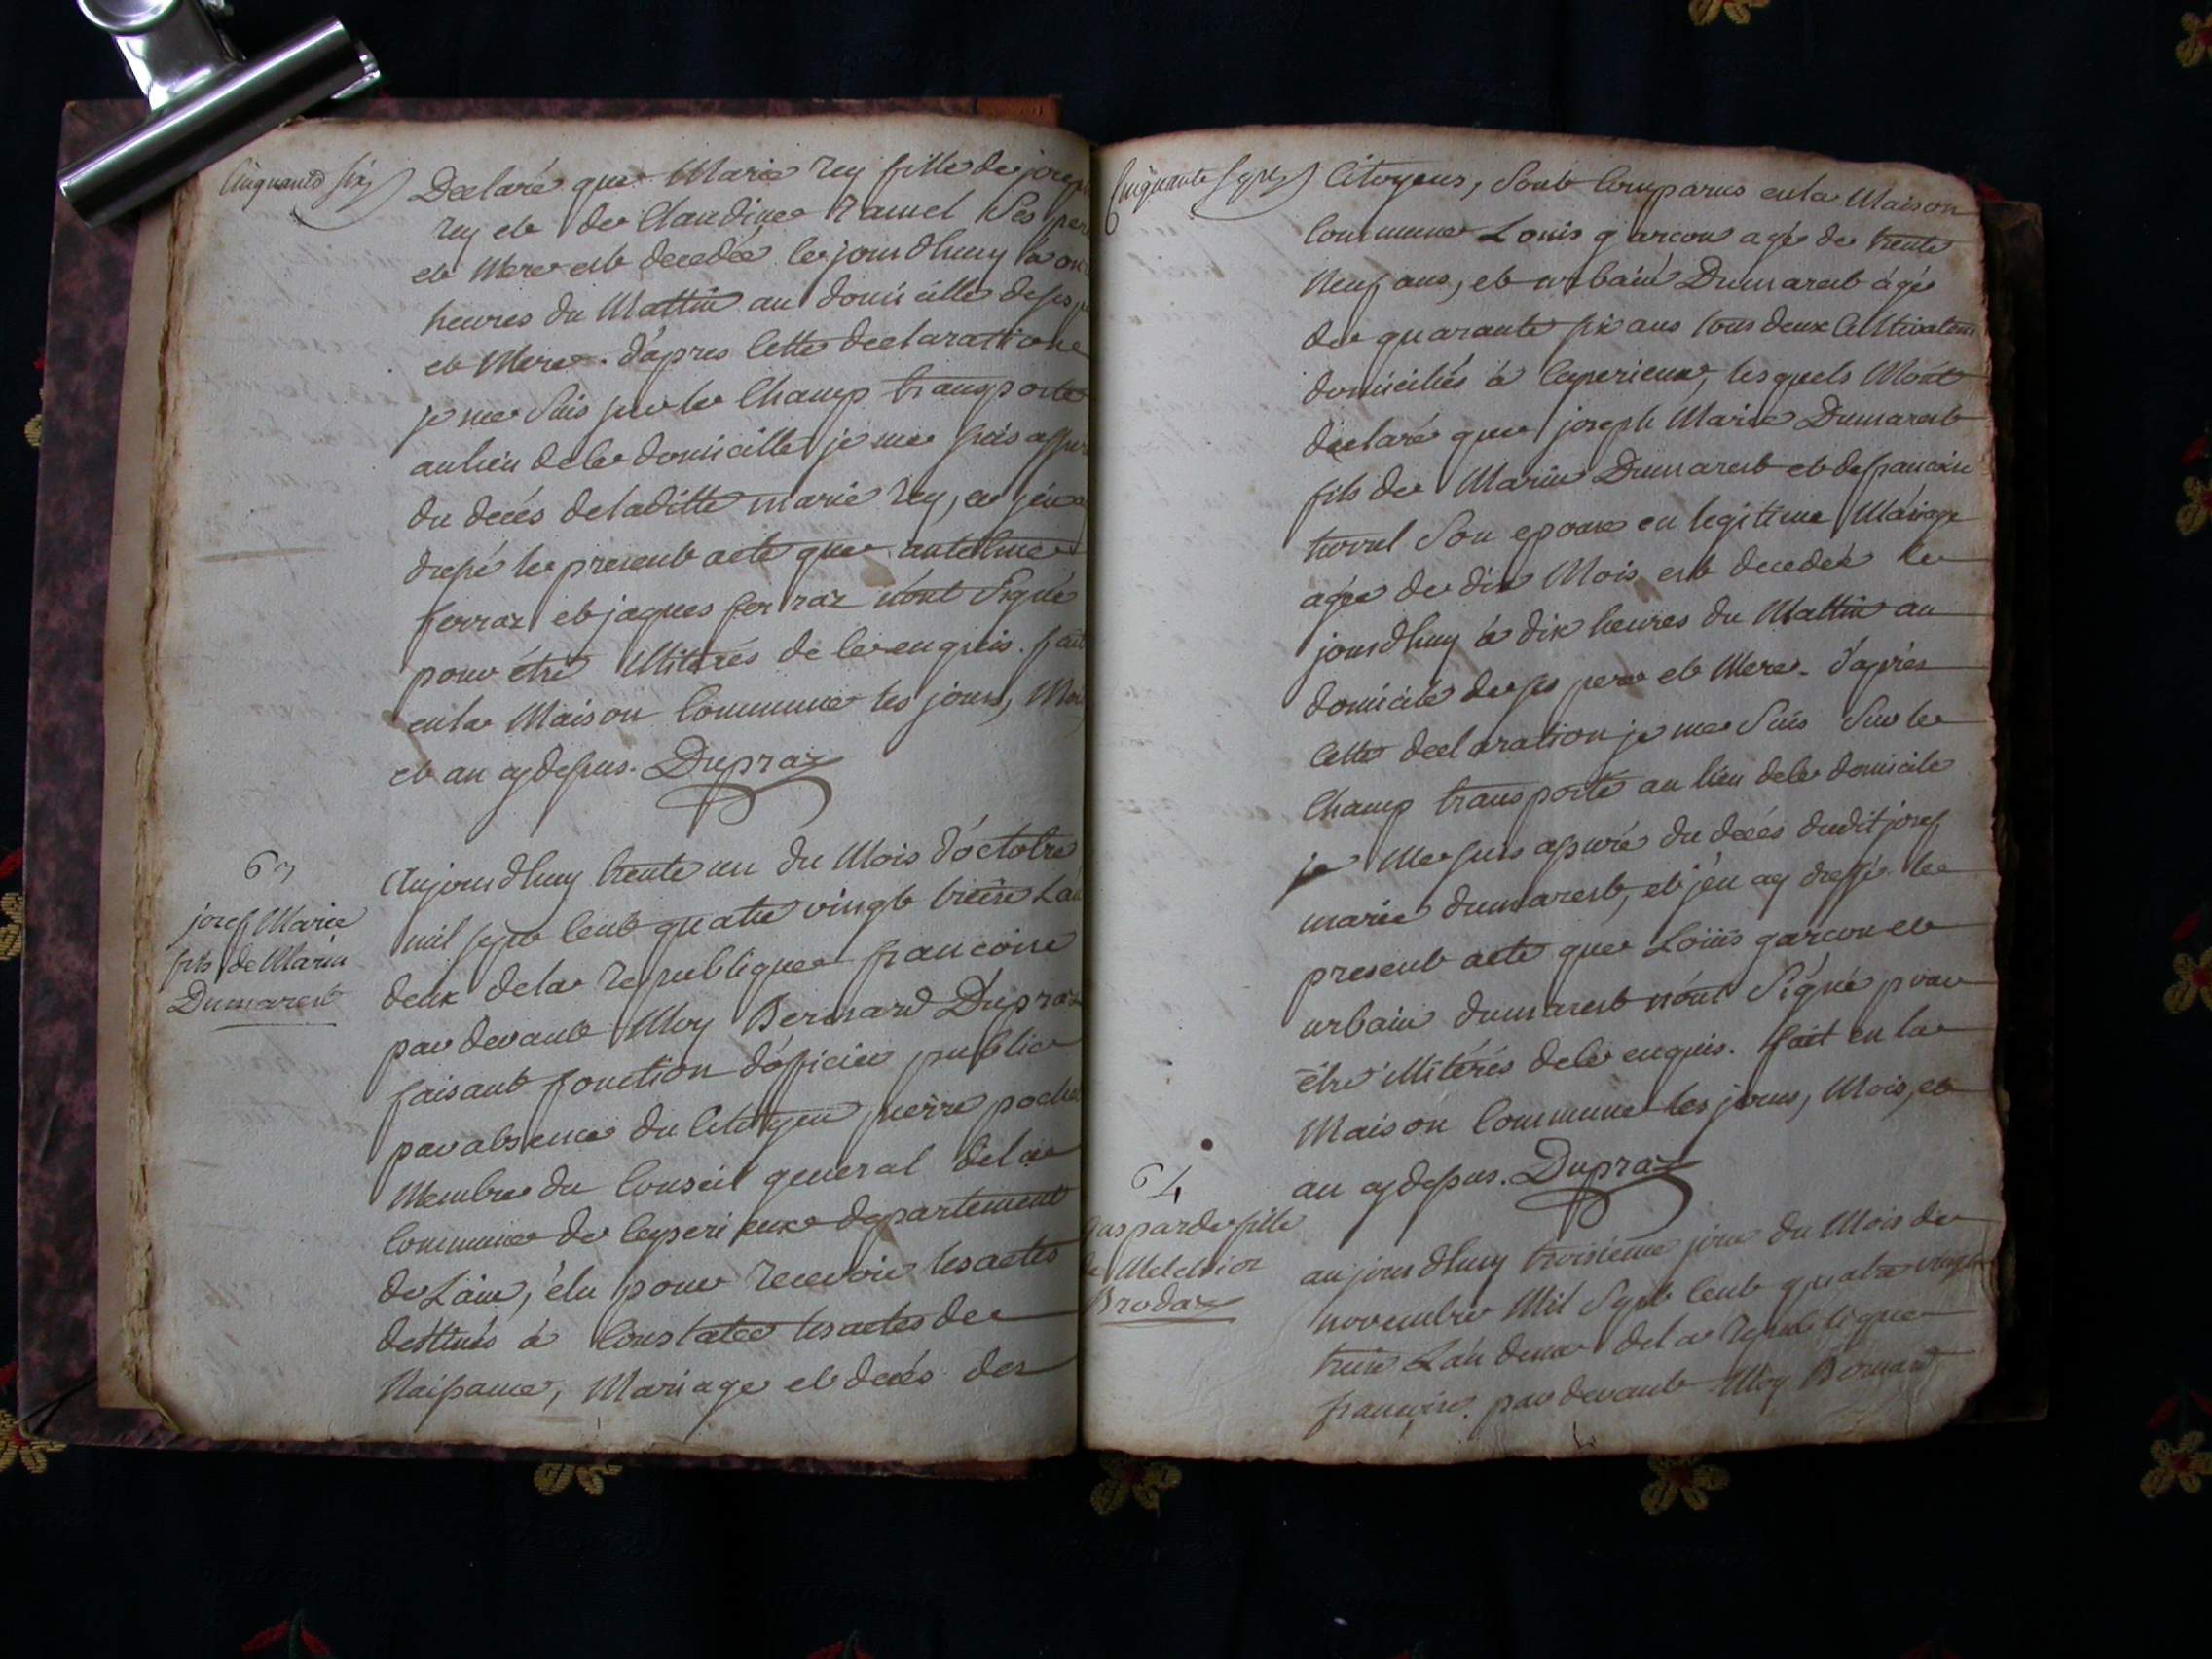 Cinquante six
Declaré que Marie rey fille de joseph
rey et de Claudine ramel Ses pere
et Mere est decedée cejourdhuy à onze
heures du Mattin au domicille de ses pere
et Mere. d'apres cette declarattion
je me suis sur le Champ transporté
au lieu de ce domicille je me suis assuré
du decés de laditte marie rey, et j'en ay
dressé le present acte que antelme
ferraz et jaques ferraz n'ont Signé
pour être illiterés de ce enquis. fait
en la Maison Commune les jours, Mois
et an cy dessus. Dupraz
63
josef Marie
fils de Marin
Dumarest
Aujourdhuy trente un du Mois d'octobre
mil sept cent quatre vingt treize L'an
deux de la republique francoise
par devant Moy Bernard Dupraz
faisant fonction d'oficier public
par absence du Citoyen pierre pochet
Membre du Conseil general de la
Commune de Ceyzerieux departement
de L'ain, élu pour recevoir les actes
destinés à Constater les actes de
Naissance, Mariage et decés des
Cinquante sept
Citoyens, sont Comparus en la Maison
Commune Louis garcon agé de trente
Neuf ans, et urbain Dumarest âgé
de quarante six ans tous deux Cultivateurs
domiciliés à Ceyzerieux, lesquels M'ont
declaré que joseph Marie Dumarest
fils de Marin Dumarest et de francoise
Son epouse en legitime Mariage
agée de dix Mois est decedé ce
jourdhuy à dix heures du Mattin au
domicile de ses pere et Mere. d'aprés
cette declaration je me suis sur le
Champ transporté au lieu de ce domicile
je Me suis assuré du decés dudit josef
marie dumarest, et j'en ay dressé le
present acte que Loüis garcon et
urbain dumarest n'ont Signé pour
être illitérés de ce enquis. fait en la
Maison Commune les jours, Mois, et
an cy dessus. Dupraz
64
gasparde fille
de Melchior
Brodaz
aujourdhuy troisieme jour du Mois de
novembre Mil Sept Cent quatre vingt
treize L'an deux de la republique
françoise. par devant Moy Bernard